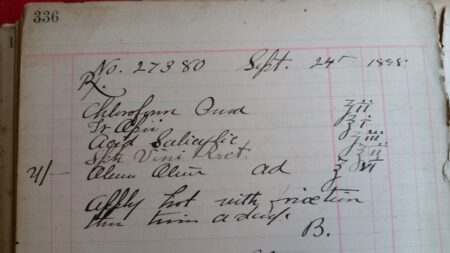 336
No. 27380 Sept. 24 1888
℞
Chloroform ʒii
Tr Opii ʒi
Acid Salicylic ʒiii
Vini Rect.
Oleum Oliv ad ʒvi
Apply hot with friction
times a day.
B.